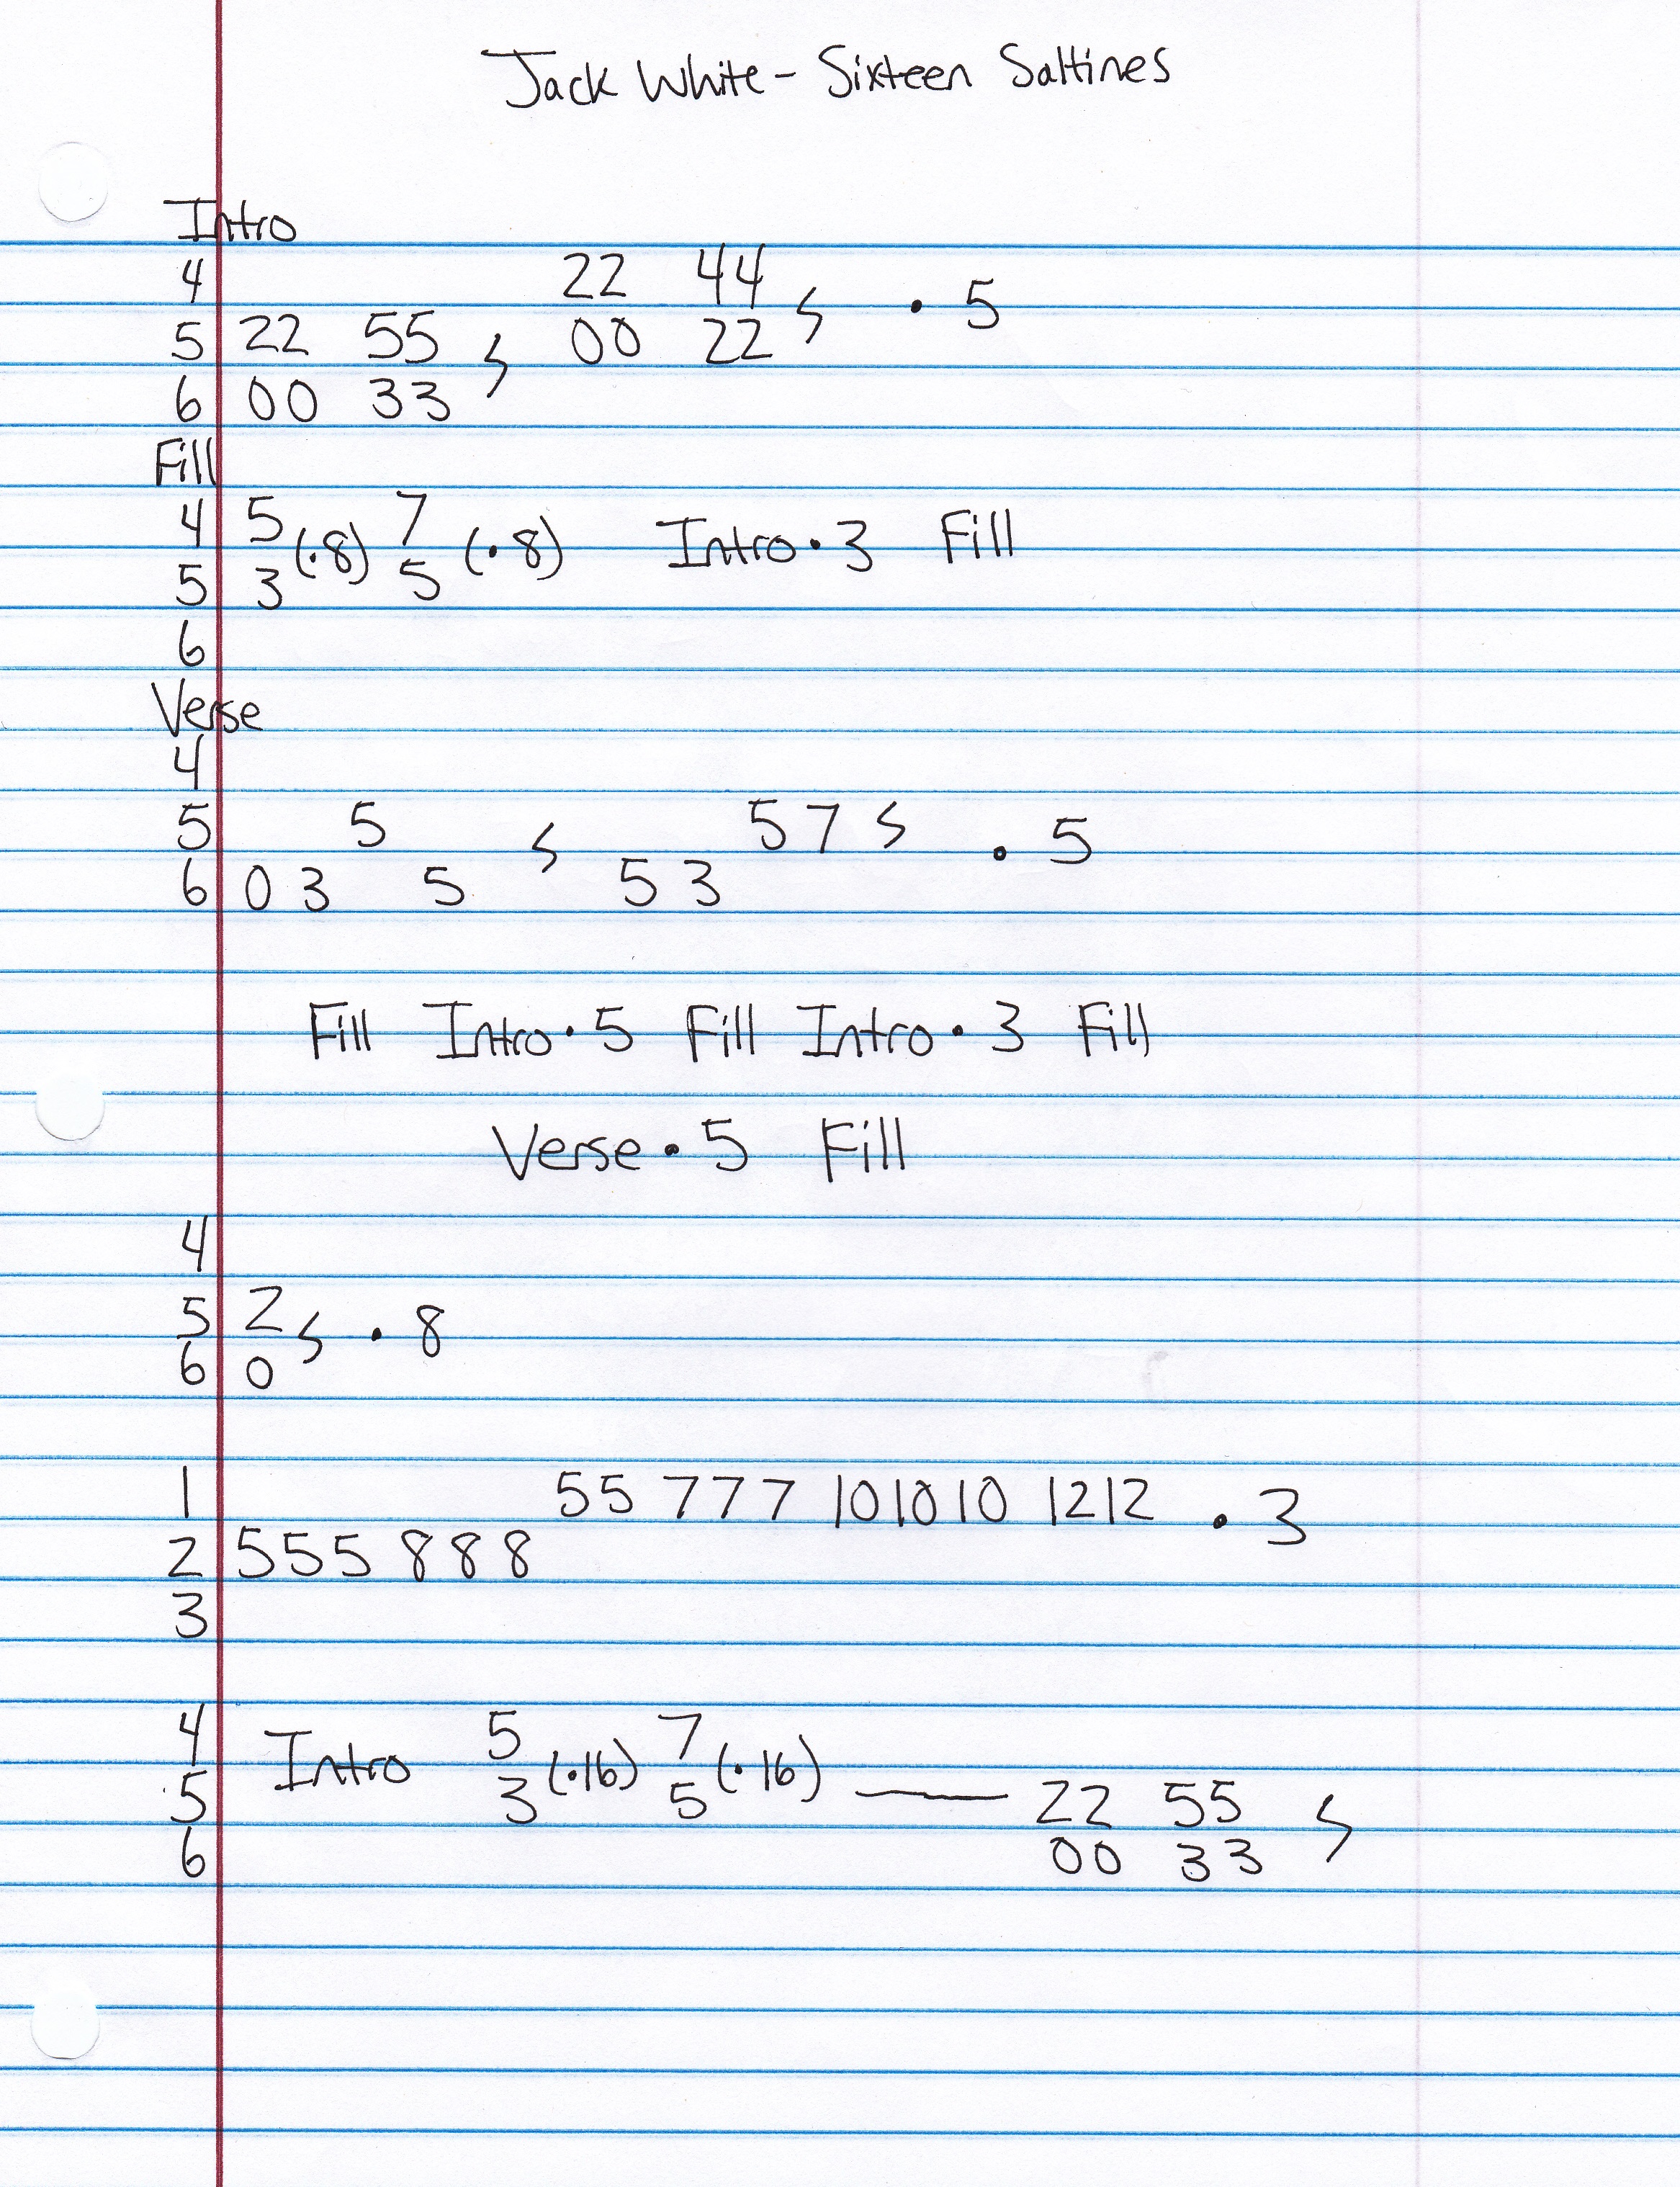 Jack White - Sixteen Saltines
Intro
4 22 44
5 22 55 ʟ 00 22 ʟ • 5
6 00 33
Fill
4 5 7
(•8) (•8) Intro • 3 Fill
5 3 5
6
Verse
4
5 5 57
6 0 3 5 5 3 • 5
Fill Intro • 5 Fill Intro • 3 Fill
Verse • 5 Fill
4
5 2 • 8
6 0
1 55 777 101010 1212 • 3
2 555 888
3
4 5 7
Intro (•16) (•16)
5 3 5 — 22 55
6 00 33